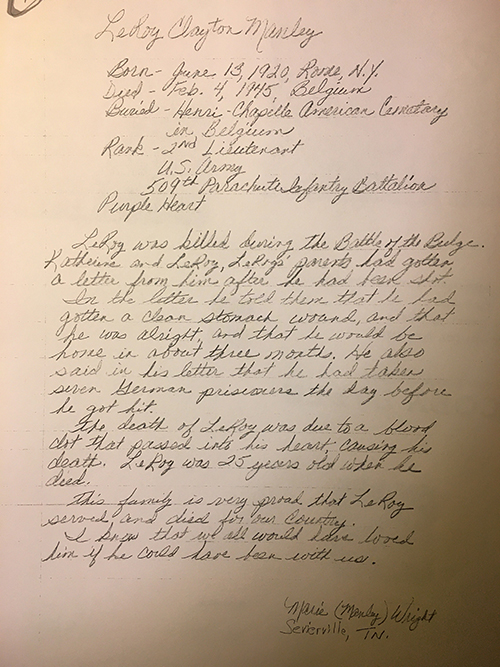 LeRoy Clayton Manley
Born - June 13, 1920, Rome, N.Y.
Died - Feb. 4, 1945, Belgium
Buried - Henri-Chapille American Cematary
in Belgium
Rank - 2nd Lieutenant
U.S. Army
509th Parachute Infantry Battalion
Purple Heart
LeRoy was killed during the Battle of the Bulge.
Katherine and LeRoy, LeRoys' parents had gotten
a letter from him after he had been shot.
In the letter he told them that he had
gotten a clean stomach wound, and that
he was alright, and that he would be
home in about three months. He also
said in his letter that he had taken
seven German prisoners the day before
he got hit.
The death of LeRoy was due to a blood
clot that passed into his heart, causing his
death. LeRoy was 25 years old when he
died.
This family is very proud that LeRoy
served, and died for our Country.
I know that we all would have loved
him if he could have been with us.
Marie (Manley) Wright
Sevierville, TN.